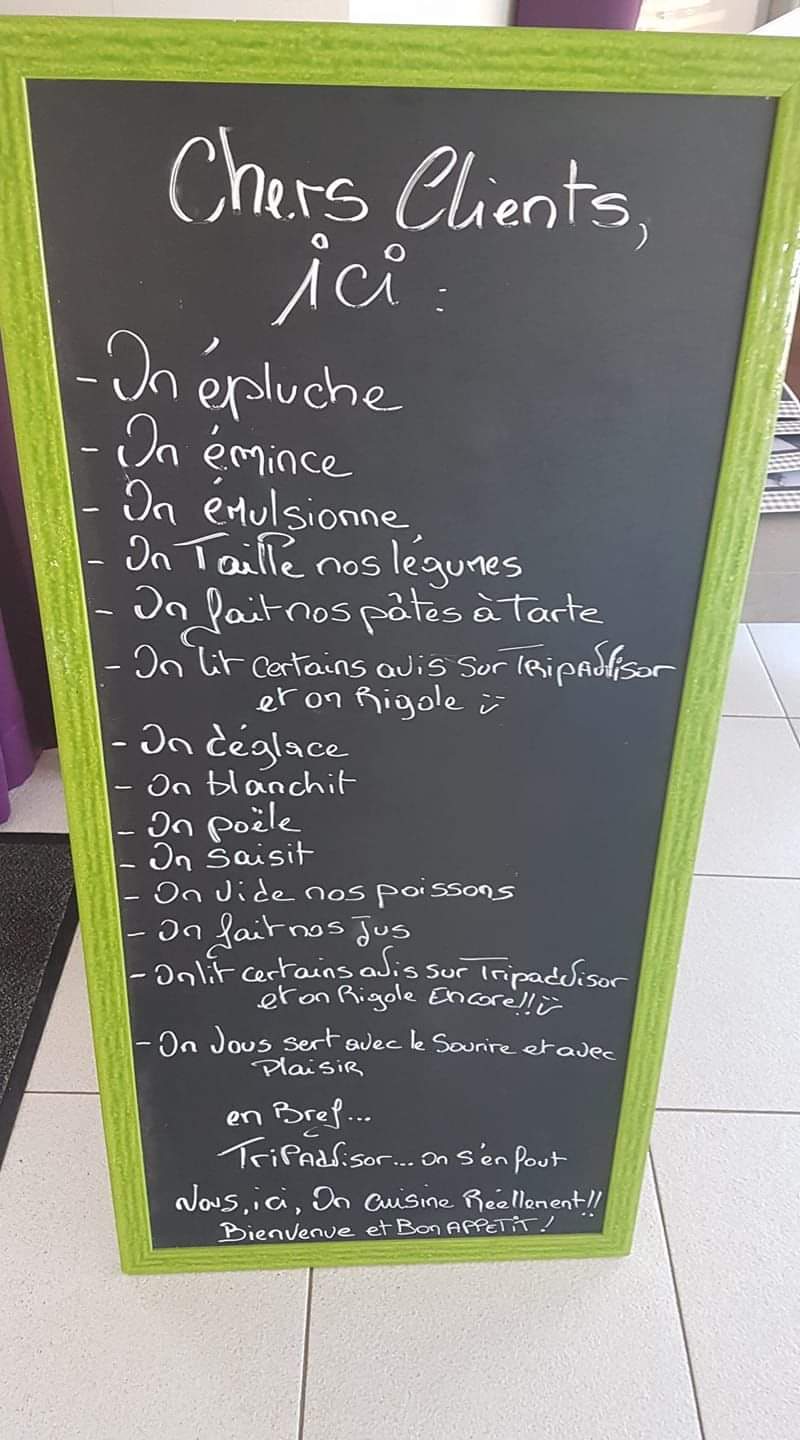 Chers Clients,
ici :
- On épluche
- On émince
- On émulsionne
- On Taille nos légumes
- On fait nos pâtes à Tarte
- On lit certains avis sur TRipAdvisor
et on Rigole :)
- On déglace
- On blanchit
- On poële
- On saisit
- On vide nos poissons
- On fait nos Jus
- On lit certains avis sur Tripadvisor
et on Rigole Encore!! :)
- On vous sert avec le Sourire et avec
PlaisiR
en Bref...
TriPAdvisor... on s'en fout
Nous, ici, On cuisine Réellement!!
Bienvenue et Bon APPETiT!